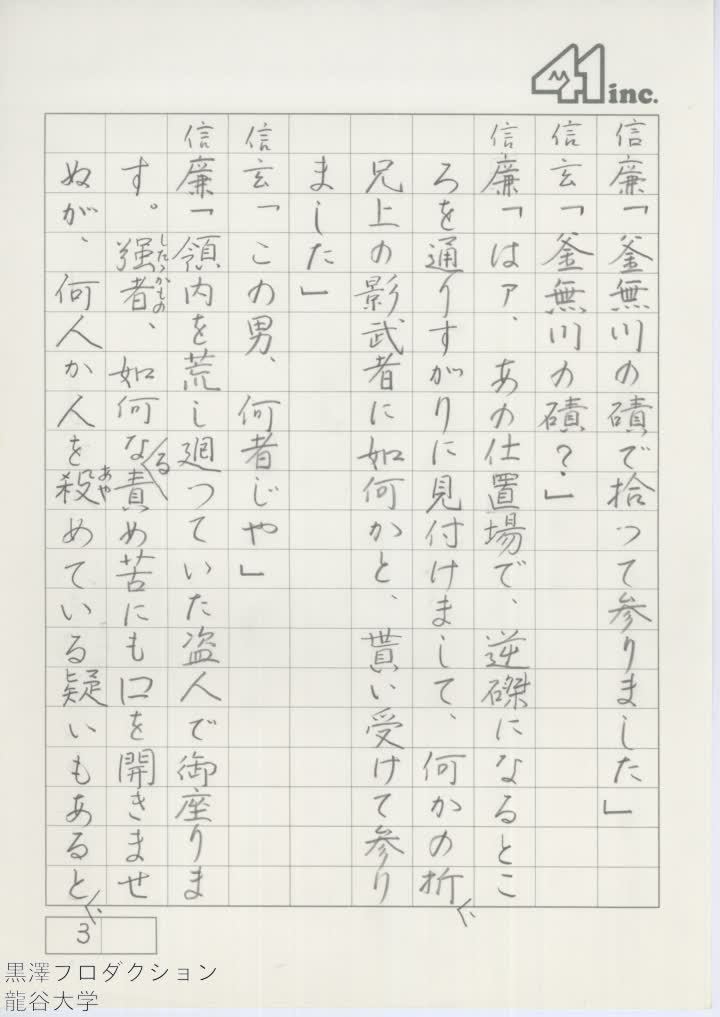 41 inc.
信廉「釜無川の磧で拾って参りました」
信玄「釜無川の磧?」
信廉「はァ、あの仕置場で、逆磔になるとこ
ろを通りすがりに見付けまして、何かの折に
兄上の影武者に如何かと、貰い受けて参り
ました」
信玄「この男、何者じゃ」
信廉「領内を荒し廻っていた盗人で御座りま
す。強者、如何なる責め苦にも口を開きませ
したゝかもの
ぬが、何人か人を殺めている疑いもあると
あや
3
黒澤プロダクション
龍谷大学